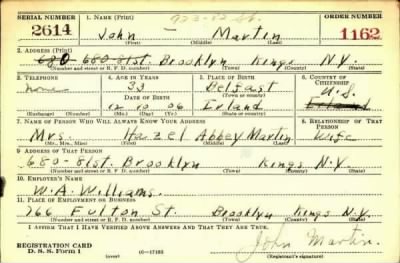 SERIAL NUMBER 1. NAME (Print) ORDER NUMBER
2614 John Martin 1162
(First) (Middle) (Last)
2. ADDRESS (Print)
680 680-81st. Brooklyn Kings N.Y.
(Number and street or R. F. D. number) (Town) (County) (State)
3. TELEPHONE 4. AGE IN YEARS 5. PLACE OF BIRTH 6. COUNTRY OF CITIZENSHIP
none 33 Belfast U.S.
DATE OF BIRTH (Town or county)
12 10 06 Irland Irland
(Exchange) (Number) (Mo.) (Day) (Yr.) (State or country)
7. NAME OF PERSON WHO WILL ALWAYS KNOW YOUR ADDRESS 8. RELATIONSHIP OF THAT PERSON
Mrs. Hazel Abbey Martin Wife
(Mr., Mrs., Miss) (First) (Middle) (Last)
9. ADDRESS OF THAT PERSON
680-81st. Brooklyn Kings N.Y.
(Number and street or R. F. D. number) (Town) (County) (State)
10. EMPLOYER'S NAME
W.A. Williams.
11. PLACE OF EMPLOYMENT OR BUSINESS
766 Fulton St. Brooklyn Kings N.Y.
(Number and street or R. F. D. number) (Town) (County) (State)
I AFFIRM THAT I HAVE VERIFIED ABOVE ANSWERS AND THAT THEY ARE TRUE.
REGISTRATION CARD John Martin.
D. S. S. Form 1 (over) 16-17105 (Registrant's signature)